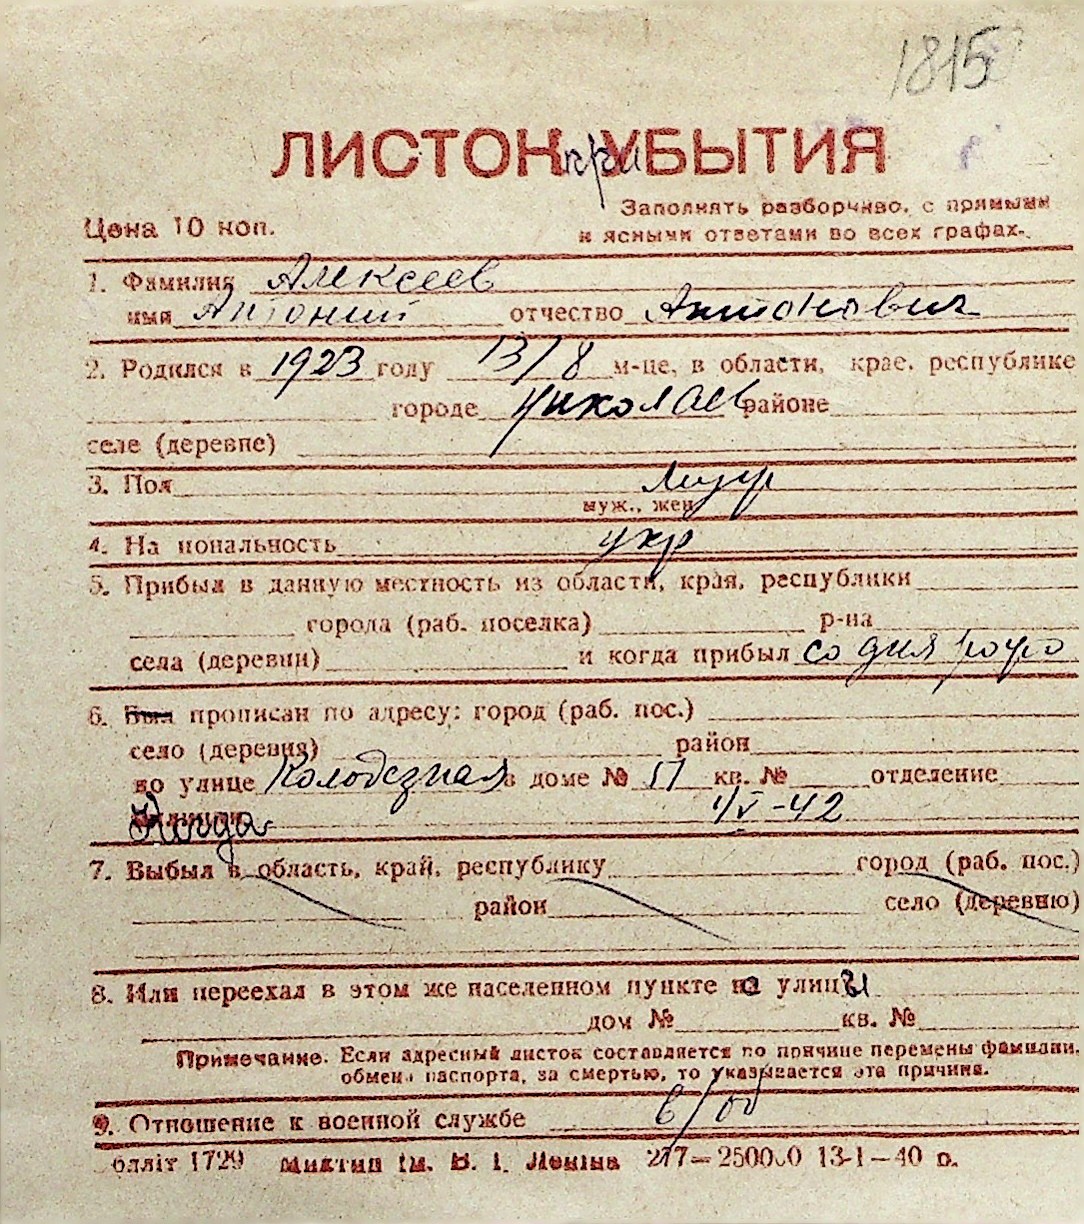 1815
ЛИСТОК при УБЫТИЯ
Цена 10 коп.
Заполнять разборчиво, с прямыми
и ясными ответами во всех графах.
1. Фамилия Алексеев
имя Антоний отчество Антонович
2. Родился в 1923 году 13/8 м-це, в области, крае, республике
городе Николаев районе
селе (деревне)
3. Пол муж
муж., жен
4. На иональность укр
5. Прибыл в данную местность из области, края, республики
города (раб. поселка) р-на
села (деревни) и когда прибыл со дня рожд
6. Был прописан по адресу: город (раб. пос.)
село (деревня) район
по улице Колодезная в доме № 51 кв. № отделение
Когда 4/V-42
7. Выбыл в область, край, республику город (раб. пос.)
район село (деревню)
8. Или переехал в этом же населенном пункте на улицы
дом № кв. №
Примечание. Если адресный листок составляется по причине перемены фамилии,
обмена паспорта, за смертью, то указывается эта причина.
9. Отношение к военной службе в/об
блліт 1729 ім. В. І. Леніна 277—250000 13-1—40 р.